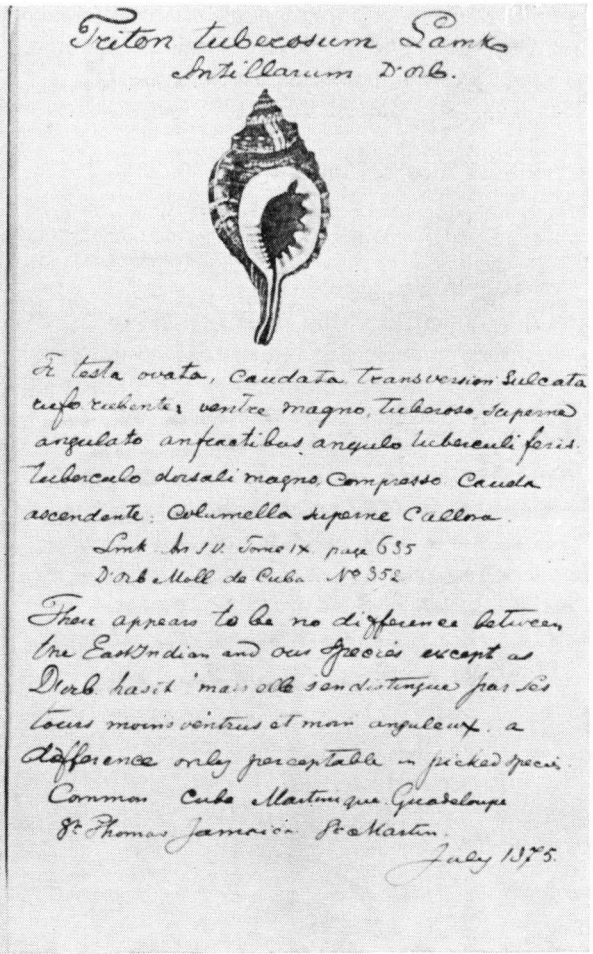 Triton tuberosum Lamk
Antillarum D'orb.
Tr testa ovata, caudata, transversion Sulcata
rufo rubente; ventre magno, tuberoso, superne
angulato anfractibus, angulo tuberculi feris.
tuberculo dorsali magno, Compresso Cauda
ascendente: Columella superne Callora.
Lmk An S V. Tome IX page 635
D'orb Moll de Cuba No 352
There appears to be no difference between
the East Indian and our Species except as
D'orb. has it 'mais elle s'en distingue par ses
tours moins ventrus et moin anguleux. a
difference only perceptable in picked specis.
Common Cuba Martinique. Guadeloupe
St Thomas Jamaica St Martin.
July 1875.